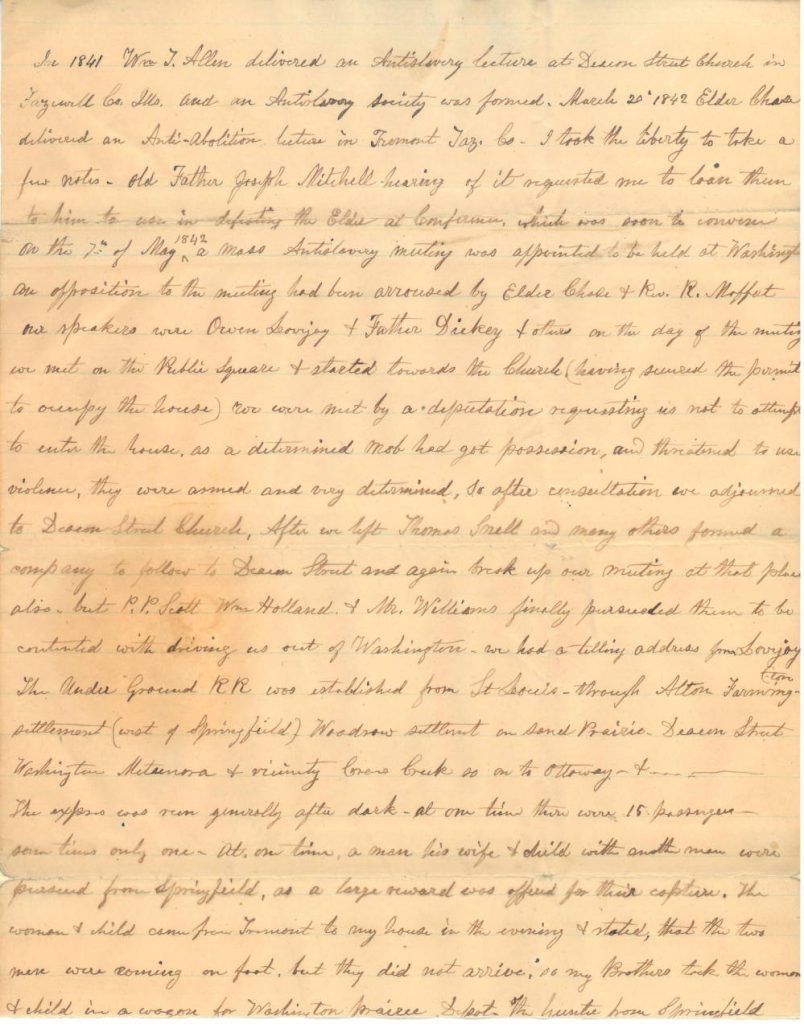 In 1841 Wm T. Allen delivered an Antislavery lecture at Deacon Street Church in
Tazewell Co. Ills. and an Antislavery society was formed. March 20th 1842 Elder Chase
delivered an Anti-Abolition lecture in Tremont Taz. Co - I took the liberty to take a
few notes - old Father Joseph Mitchell hearing of it requested me to loan them
to him to use in defeating the Elder at Conference, which was soon to convene
On the 7th of May 1842 a mass Antislavery meeting was appointed to be held at Washington
an opposition to the meeting had been arroused by Elder Chase & Rev. R. Moffat
our speakers were Owen Lovejoy & Father Dickey & others on the day of the meeting
we met on the Public Square & started towards the Church (having secured the permit
to occupy the house) we were met by a deputation requesting us not to attempt
to enter the house, as a determined mob had got possession, and threatened to use
violence, they were armed and very determined, so after consultation we adjourned
to Deacon Street Church, After we left Thomas Snell and many others formed a
company to follow to Deacon Street and again break up our meeting at that place
also - but P. P. Scott Wm Holland. & Mr. Williams finally pursueded them to be
contented with driving us out of Washington - we had a telling address from Lovejoy
The Under Ground RR was established from St Louis - through Alton Farmington
settlement (west of Springfield) Woodrow settlmt on Sand Prairie - Deacon Street
Washington Metamora & vicinity Crow Creek so on to Ottoway - &
The express was run generally after dark - at one time there were 15 passengers -
some times only one - At. one time, a man his wife & child with another man were
pursued from Springfield, as a large reward was offered for their capture. The
woman & child came from Tremont to my house in the evening & stated, that the two
men were coming on foot, but they did not arrive, so my Brothers took the woman
& child in a wagon for Washington prairie Depot - The hunters from Springfield